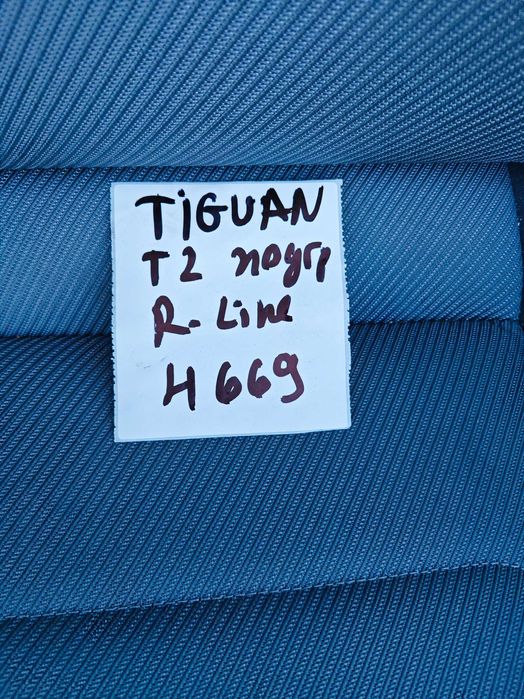 TiGUAN
T2
R-Line
H669